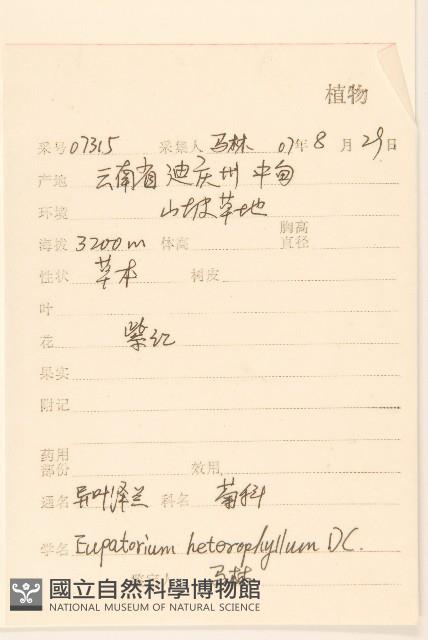 植物
采号 07315 采集人 马林 07年 8 月 29日
产地 云南省 迪庆州 中甸
环境 山坡草地
胸高
海拨 3200m 体高 直径
性状 草本 树皮
叶
花 紫红
果实
附记
药用
部份 效用
通名 异叶泽兰 科名 菊科
学名 Eupatorium heterophyllum DC.
马林
國立自然科學博物館
NATIONAL MUSEUM OF NATURAL SCIENCE